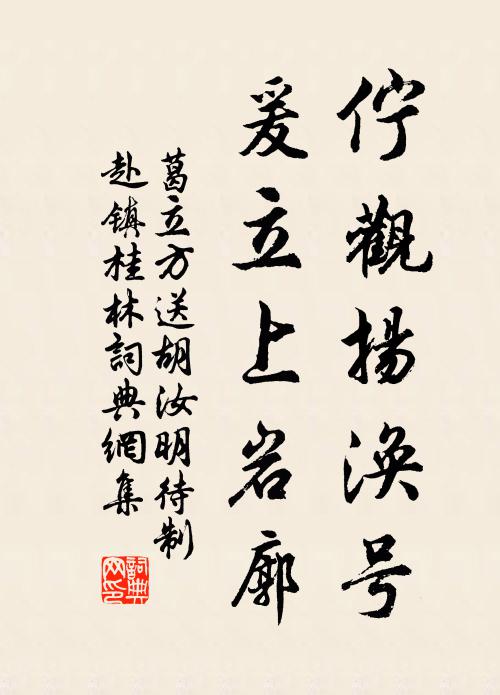 佇觀揚渙号
爰立上岩廓
葛立方送胡汝明待制
赴镇桂林詞典網集
詞典网印